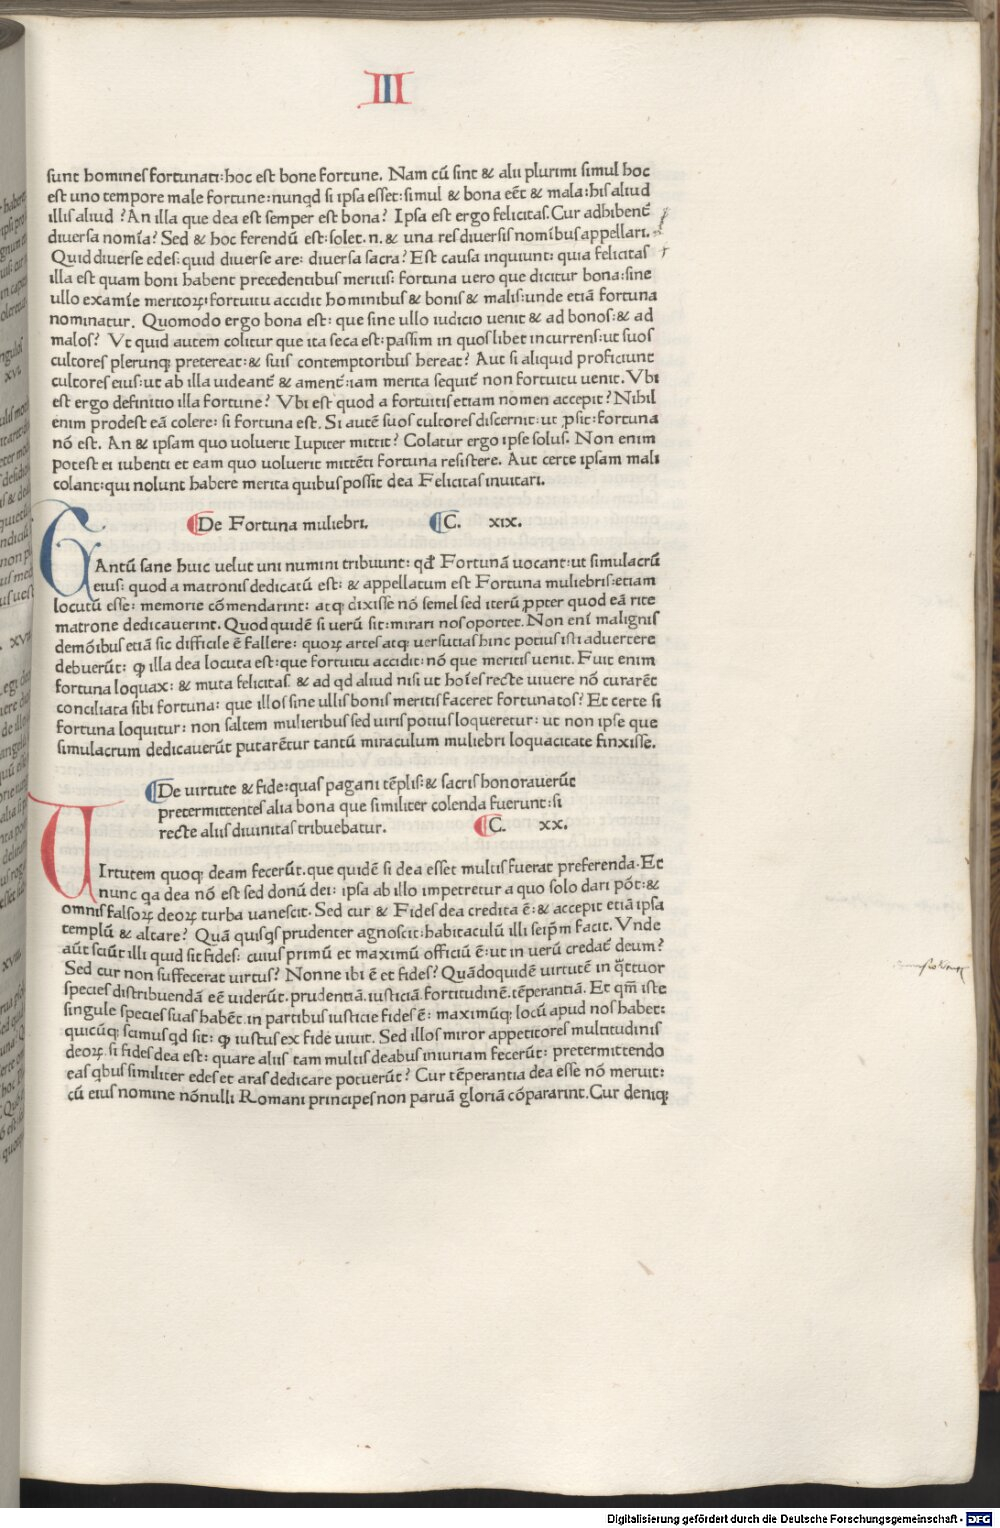 III
sunt homines fortunati: hoc est bone fortune. Nam cū sint & alii plurimi simul hoc
est uno tempore male fortune: nunqd si ipsa esset: simul & bona eēt & mala: his aliud
illis aliud? An illa que dea est semper est bona? Ipsa est ergo felicitas. Cur adhibent̄
diuersa nomīa? Sed & hoc ferendū est: solet. n. & una res diuersis nomībus appellari.
Quid diuerse edes: quid diuerse are: diuersa sacra? Est causa inquiunt: quia felicitas
illa est quam boni habent precedentibus meritis: fortuna uero que dicitur bona: sine
ullo examīe meritoꝝ: fortuitu accidit hominibus & bonis & malis: unde etiā fortuna
nominatur. Quomodo ergo bona est: que sine ullo iudicio uenit & ad bonos: & ad
malos? Vt quid autem colitur que ita seca est: passim in quoslibet incurrens: ut suos
cultores plerunqꝫ pretereat: & suis contemptoribus hereat? Aut si aliquid proficiunt
cultores eius: ut ab illa uideant̄ & ament̄: iam merita sequit̄ non fortuitu uenit. Vbi
est ergo definitio illa fortune? Vbi est quod a fortuitis etiam nomen accepit? Nihil
enim prodest eā colere: si fortuna est. Si autē suos cultores discernit: ut ꝓsit: fortuna
nō est. An & ipsam quo uoluerit Iupiter mittit? Colatur ergo ipse solus. Non enim
potest ei iubenti et eam quo uoluerit mittēti fortuna resistere. Aut certe ipsam mali
colant: qui nolunt habere merita quibus possit dea Felicitas inuitari.
De Fortuna muliebri. C. xix.
TAntū sane huic uelut uni numini tribuunt: qđ Fortunā uocant: ut simulacrū
eius: quod a matronis dedicatū est: & appellatum est Fortuna muliebris: etiam
locutū esse: memorie cōmendarint: atqꝫ dixisse nō semel sed iterū ꝓpter quod eā rite
matrone dedicauerint. Quod quidē si uerū sit: mirari nos oportet. Non eni malignis
demōibus etiā sic difficile ē fallere: quoꝝ artes atqꝫ uersutias hinc potius isti aduertere
debuerūt: ꝙ illa dea locuta est: que fortuitu accidit: nō que meritis uenit. Fuit enim
fortuna loquax: & muta felicitas. & ad qd aliud nisi ut hoīes recte uiuere nō curarēt
conciliata sibi fortuna: que illos sine ullis bonis meritis faceret fortunatos? Et certe si
fortuna loquitur: non saltem mulieribus sed uiris potius loqueretur: ut non ipse que
simulacrum dedicauerūt putarētur tantū miraculum muliebri loquacitate finxisse.
De uirtute & fide: quas pagani tēplis: & sacris honorauerūt
pretermittentes alia bona que similiter colenda fuerunt: si
recte aliis diuinitas tribuebatur. C. xx.
UIrtutem quoqꝫ deam fecerūt. que quidē si dea esset multis fuerat preferenda. Et
nunc qa dea nō est sed donū dei: ipsa ab illo impetretur a quo solo dari pōt: &
omnis falsoꝝ deoꝝ turba uanescit. Sed cur & Fides dea credita ē: & accepit etiā ipsa
templū & altare? Quā quisqs prudenter agnoscit: habitaculū illi seipm̄ facit. Vnde
aūt sciūt illi quid sit fides: cuius primū et maximū officiū ē: ut in uerū credat̄ deum?
Sed cur non suffecerat uirtus? Nonne ibi ē et fides? Quādoquidē uirtutē in q̄ttuor
species distribuendā eē uiderūt. prudentiā. iusticiā. fortitudinē. tēperantiā. Et qm̄ iste
singule species suas habēt. in partibus iusticie fides ē: maximūqꝫ locū apud nos habet:
quicūqꝫ scimus qd sit: ꝙ iustus ex fide uiuit. Sed illos miror appetitores multitudinis
deoꝝ. si fides dea est: quare aliis tam multis deabus iniuriam fecerūt: pretermittendo
eas qbus similiter edes et aras dedicare potuerūt? Cur tēperantia dea esse nō meruit:
cū eius nomine nōnulli Romani principes non paruā gloriā cōpararint. Cur deniqꝫ
Digitalisierung gefördert durch die Deutsche Forschungsgemeinschaft - DFG